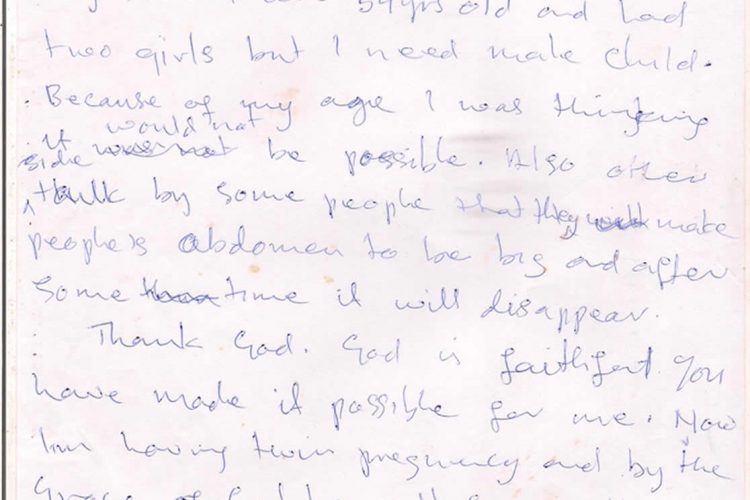 54yrs old and had
two girls but I need male child.
Because of my age I was thinking
it would not
side was not be possible. Also other
talk by some people that they will make
people's abdomen to be big and after
some time it will disappear.
Thank God. God is faithful. You
have made it possible for me. Now
I'm having twin pregnancy and by the
Grace of God